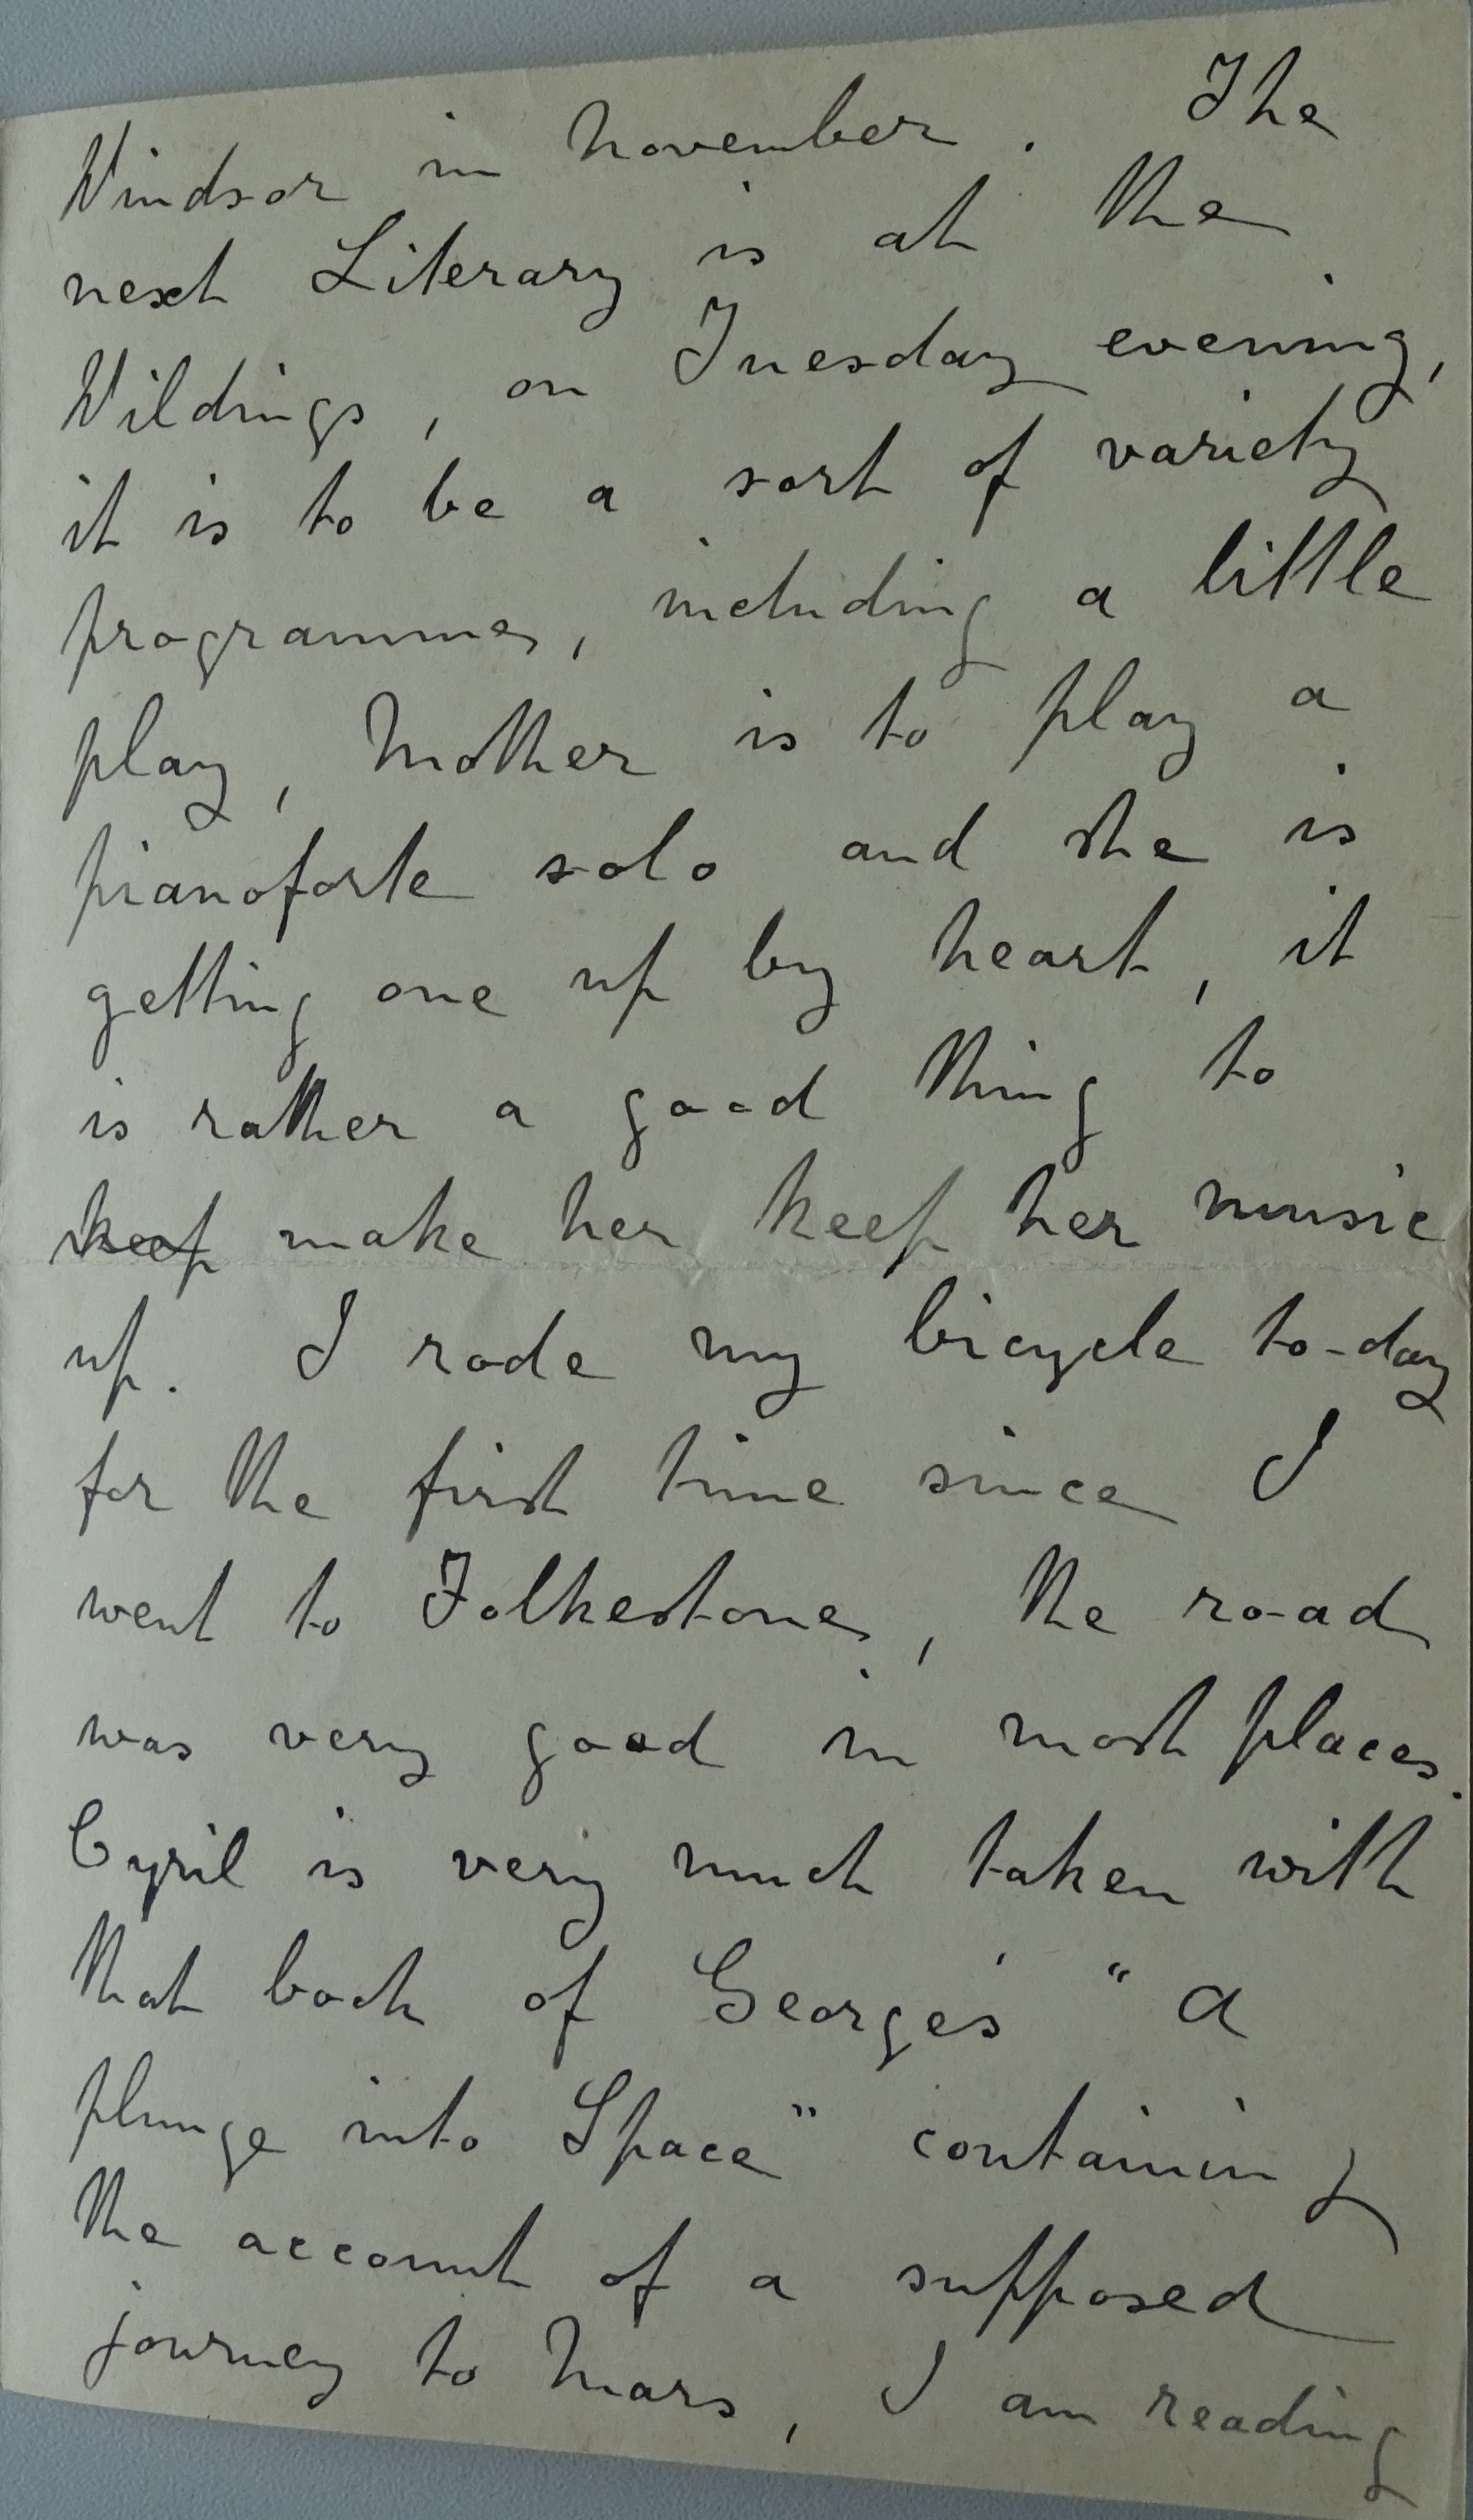 Windsor in November. The
next Literary is at the
Wildings, on Tuesday evening,
it is to be a sort of variety
programme, including a little
play, Mother is to play a
pianoforte solo and she is
getting one up by heart, it
is rather a good thing to
keep make her keep her music
up. I rode my bicycle to-day
for the first time since I
went to Folkestone, the road
was very good in most places.
Cyril is very much taken with
that book of George's "A
plunge into Space" containing
the account of a supposed
journey to Mars, I am reading